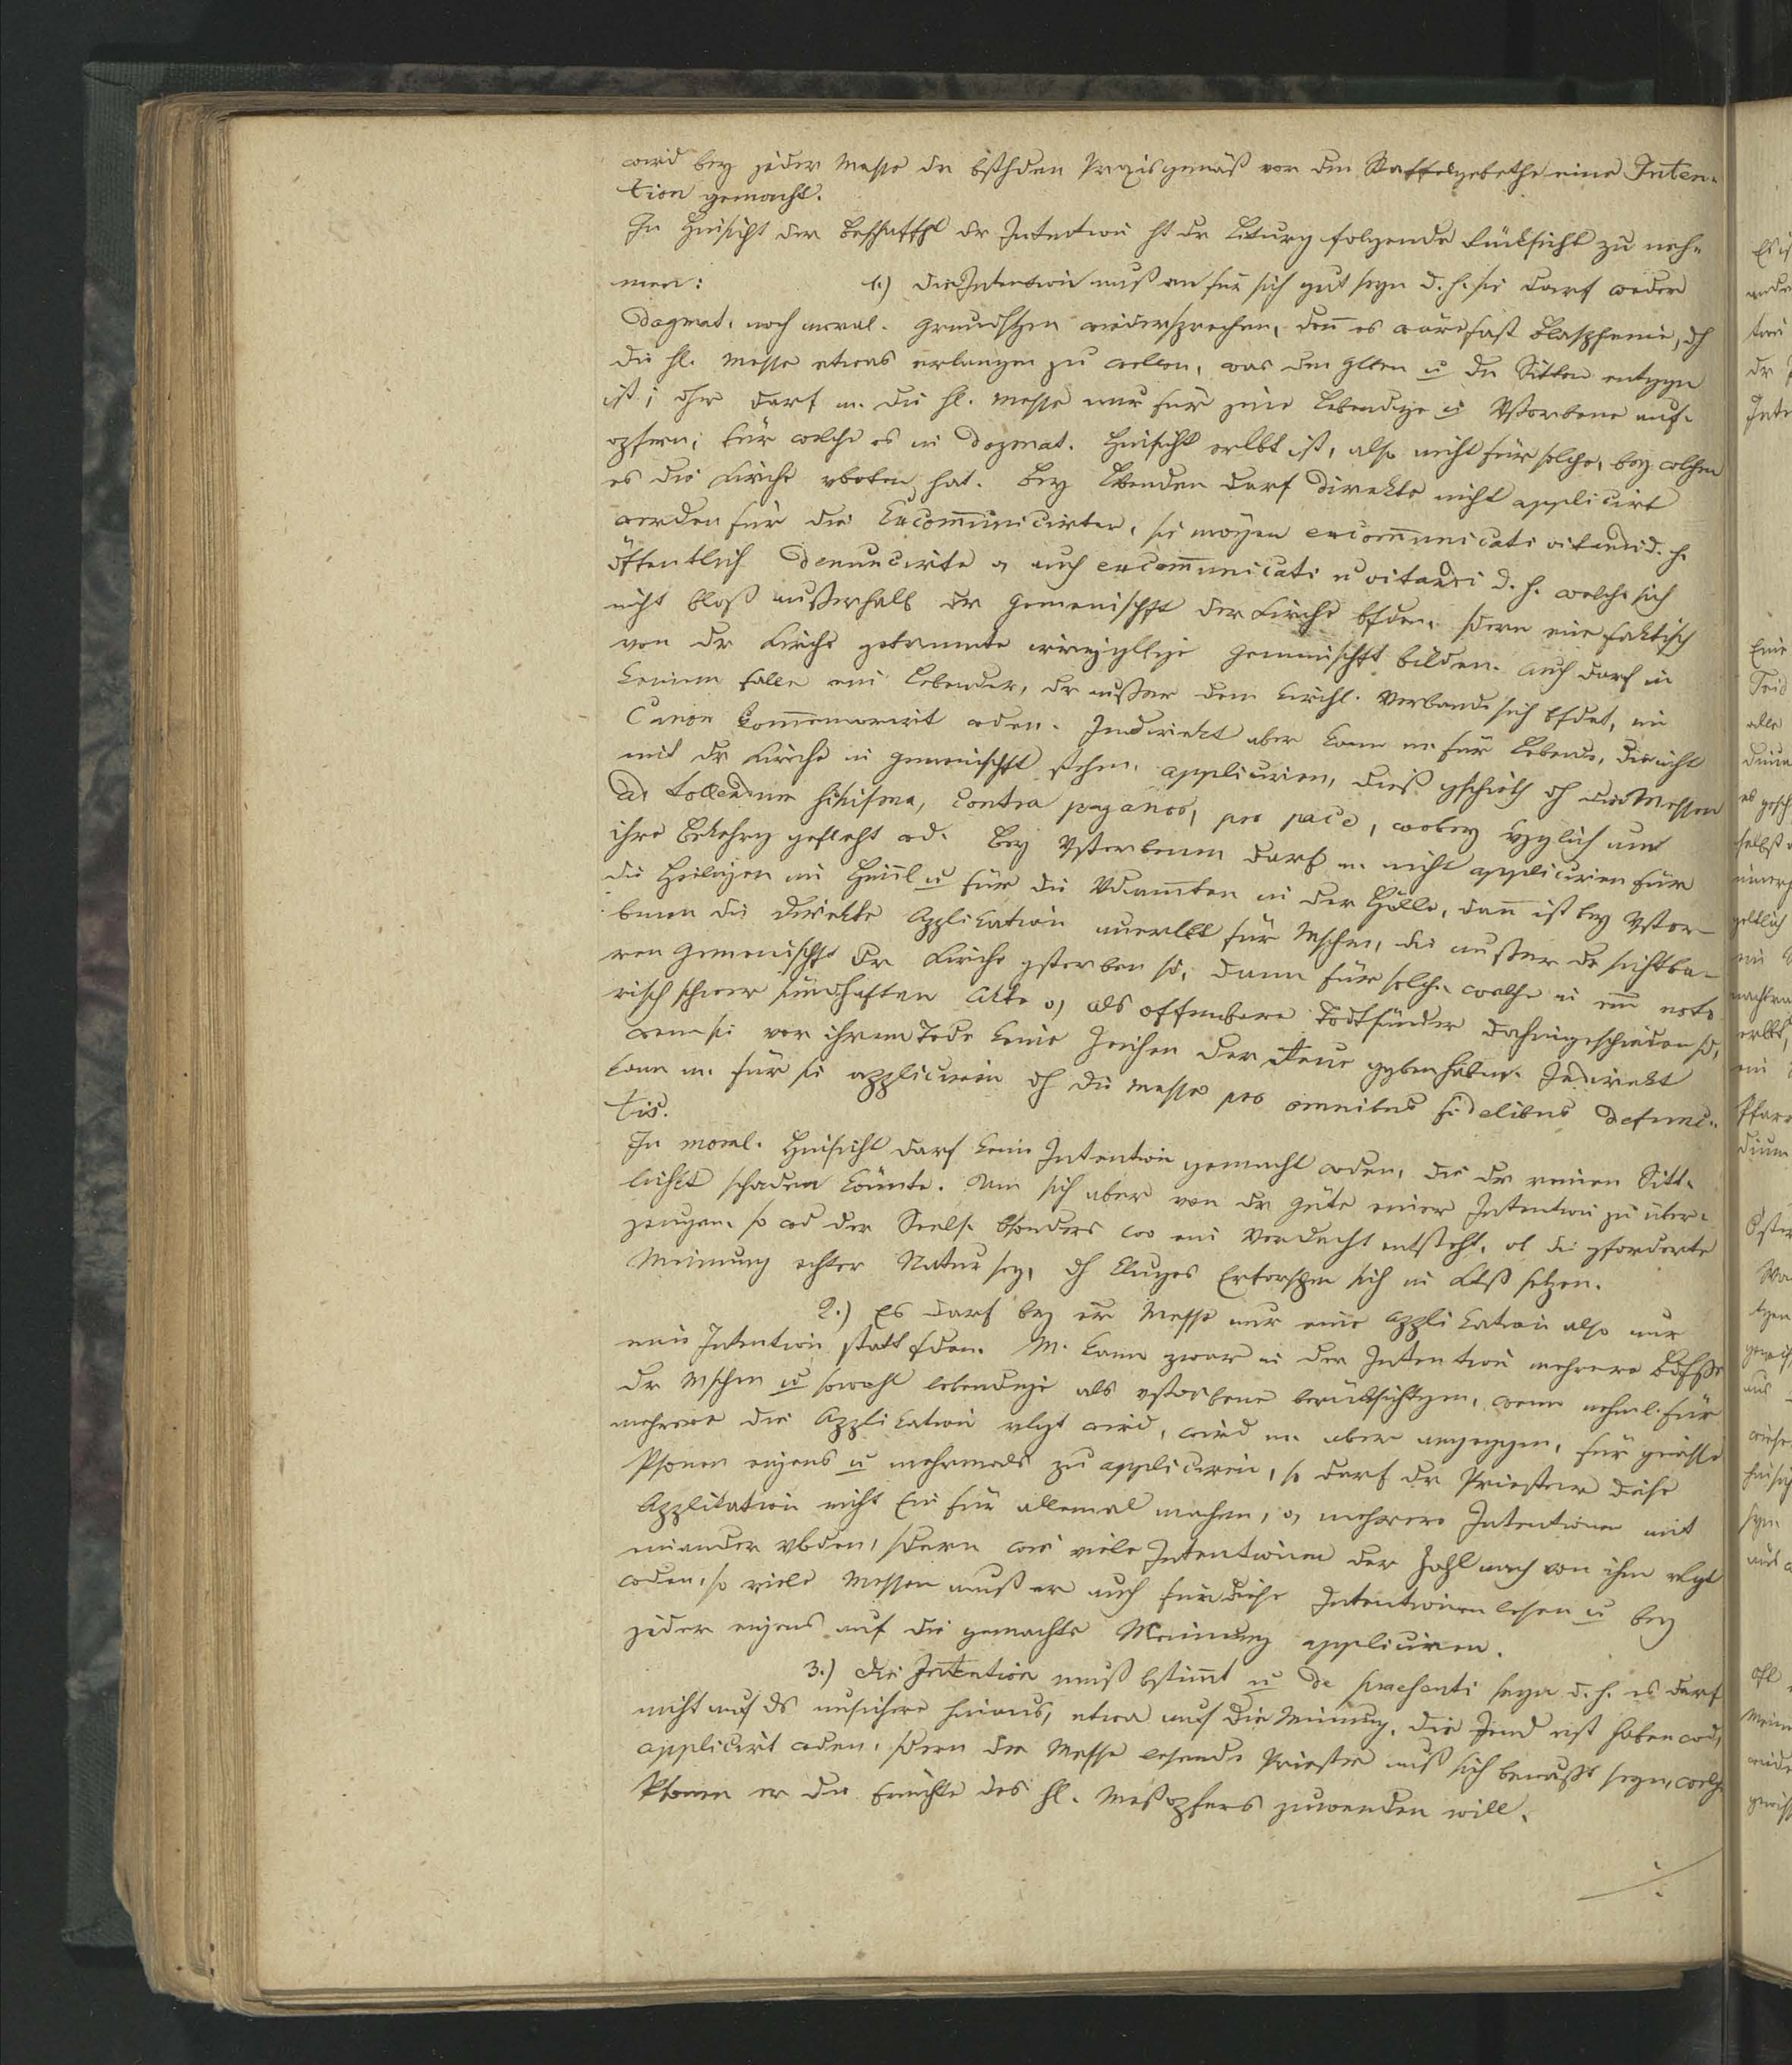 wird bey jeder Messe der bsthden Praxis gemäß vor den Staffelgebethe eine Inten-
tion gemacht.
In Hinsicht der Beschaffht dr Intention ht dr Liturg folgende Rücksicht zu neh-
men: 1.) Die Intention muß an für sich gut seyn d. h. sie darf weder
dogmat. noch moral. Grundsätzen widersprechen, denn es wäre fast Blasphemie, dh
die hl. Messe etwas erlangen zu wollen, was den Glben u der Sitten entggn
ist; dhr darf m. die hl. Messe nur für jene Lebendige u Vstorbene auf-
opfern, für welche es in dogmat. Hinsicht erlbt ist, also nicht für solche, bey welchen
es die Kirche vboten hat. Bey Lbenden darf direkte nicht applicirt
werden für die Excommunicirten, sie mögen excommunicati vitandi d. h.
öffentlich denuncirte o auch excommunicati n vitandi d. h. welche sich
nicht bloß außerhalb der Gemeinschft der Kirche bfden, sdern eine faktisch
von dr Kirche getrennte irrgglbige Gemeinschft bilden. Auch darf in
keinem Falle ein Lebender, dr außer dem kirchl. Verbande sich bfdet, im
Canon kommemorirt wden. Indirekt aber kann m. für Lebende, die nicht
mit dr Kirche in Gemeinschft stehen, appliciren, dieß gschieht dh die Messen
ad tollendum schisma, contra paganos, pro pace, wobey vzglich um
ihre Bekehrg gefleht wd. Bey Vstorbenen darf m. nicht appliciren für
die Heiligen im Himl u für die Vdammten in der Hölle, dann ist bey Vstor-
benen die direkte Applikation unerlbt für Mschen, die außer dr sichtba-
ren Gemeinschft der Kirche gstorben sd, dann für solche welche in em noto-
risch schwer sündhaften Akte o als offenbare Todtsünder dahingeschieden sd,
wenn sie vor ihrem Tode keine Zeichen der Reue ggben haben. Indirekt
kann m. für sie appliciren dh die Messe pro omnibus fidelibus defunc-
tis.
In moral. Hinsicht darf keine Intention gemacht wden, die der reinen Sitt-
lichkt schaden könnte. Um sich aber von dr Güte einer Intention zu über-
zeugen, so wd der Seels. bsonders wo ein Verdacht entsteht, ob die gforderte
Meinung echter Natur sey, dh kluges Erforschen sich in setzen.
2.) Es darf bey er Messe nur eine Applikation also nur
eine Intention statt fden. M. kann zwar in der Intention mehrere Bdfsse
dr Mschen u sowohl lebendige als vstorbene berücksichtigen, wenn nehml. für
mehrere die Applikation vlgt wird, wird m. aber angeggen, für gwisse
Psonen eigens u mehrmals zu appliciren, so darf dr Priester diese
Applikation nicht Ein für allemal machen, o mehrere Intentionen mit
einander vbden, sdern wie viele Intentionen der Zahl nach von ihm vlgt
wden, so viele Messen muß er auch für diese Intentionen lesen u bey
jeder eigens auf die gemachte Meinung appliciren.
3.) Die Intention muß bstimt u de praesenti seyn d. h. es darf
nicht auf ds unsichere hinaus, etwa auf die Meinung, die Jmd erst haben wd,
applicirt wden, sdern der Messe lesende Priester muß sich bewußt seyn, welch
Psonen er die Früchte des hl. Meßopfers zuwenden will.